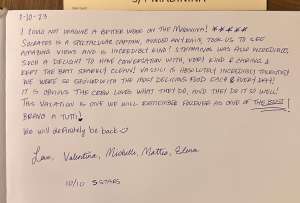 1-10-23
I could not imagine a better week on the Madnina! *****
Socrates is a spectacular captain, avoided any rain, took us to see
amazing views and is incredibly kind! Stefanina was also incredible,
such a delight to have conversation with, very kind & caring &
kept the boat sparkly clean! Vassili is absolutely incredibly talented!
We were so spoiled with the most delicious food each & every day!
It is obvious the crew loves what they do, and they do it so well!
This vacation is one we will remember forever as one of the best!
Bravo a tutti
We will definitely be back
Love, Valentina, Michelle, Matteo, Elena
10/10 5 STARS